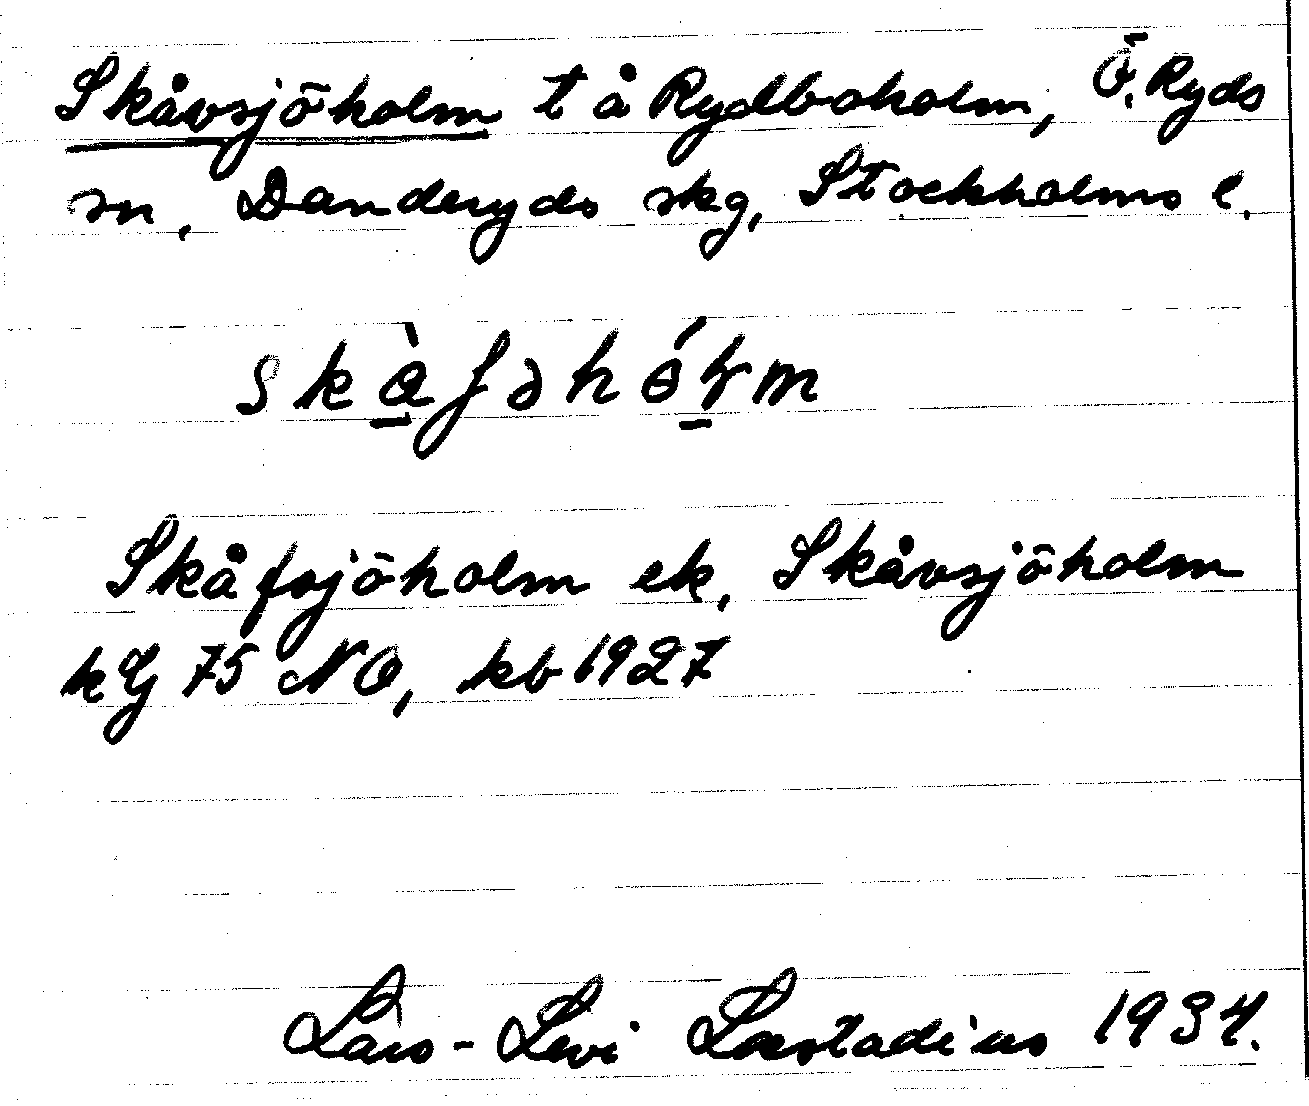 Skåvsjöholm t å Rydboholm, Ö. Ryds
sn, Danderyds skg, Stockholms l.
skàfəhólm
Skåfsjöholm ek, Skåvsjöholm
kG 75 NO, kb 1927
Lars-Levi Læstadius 1934.